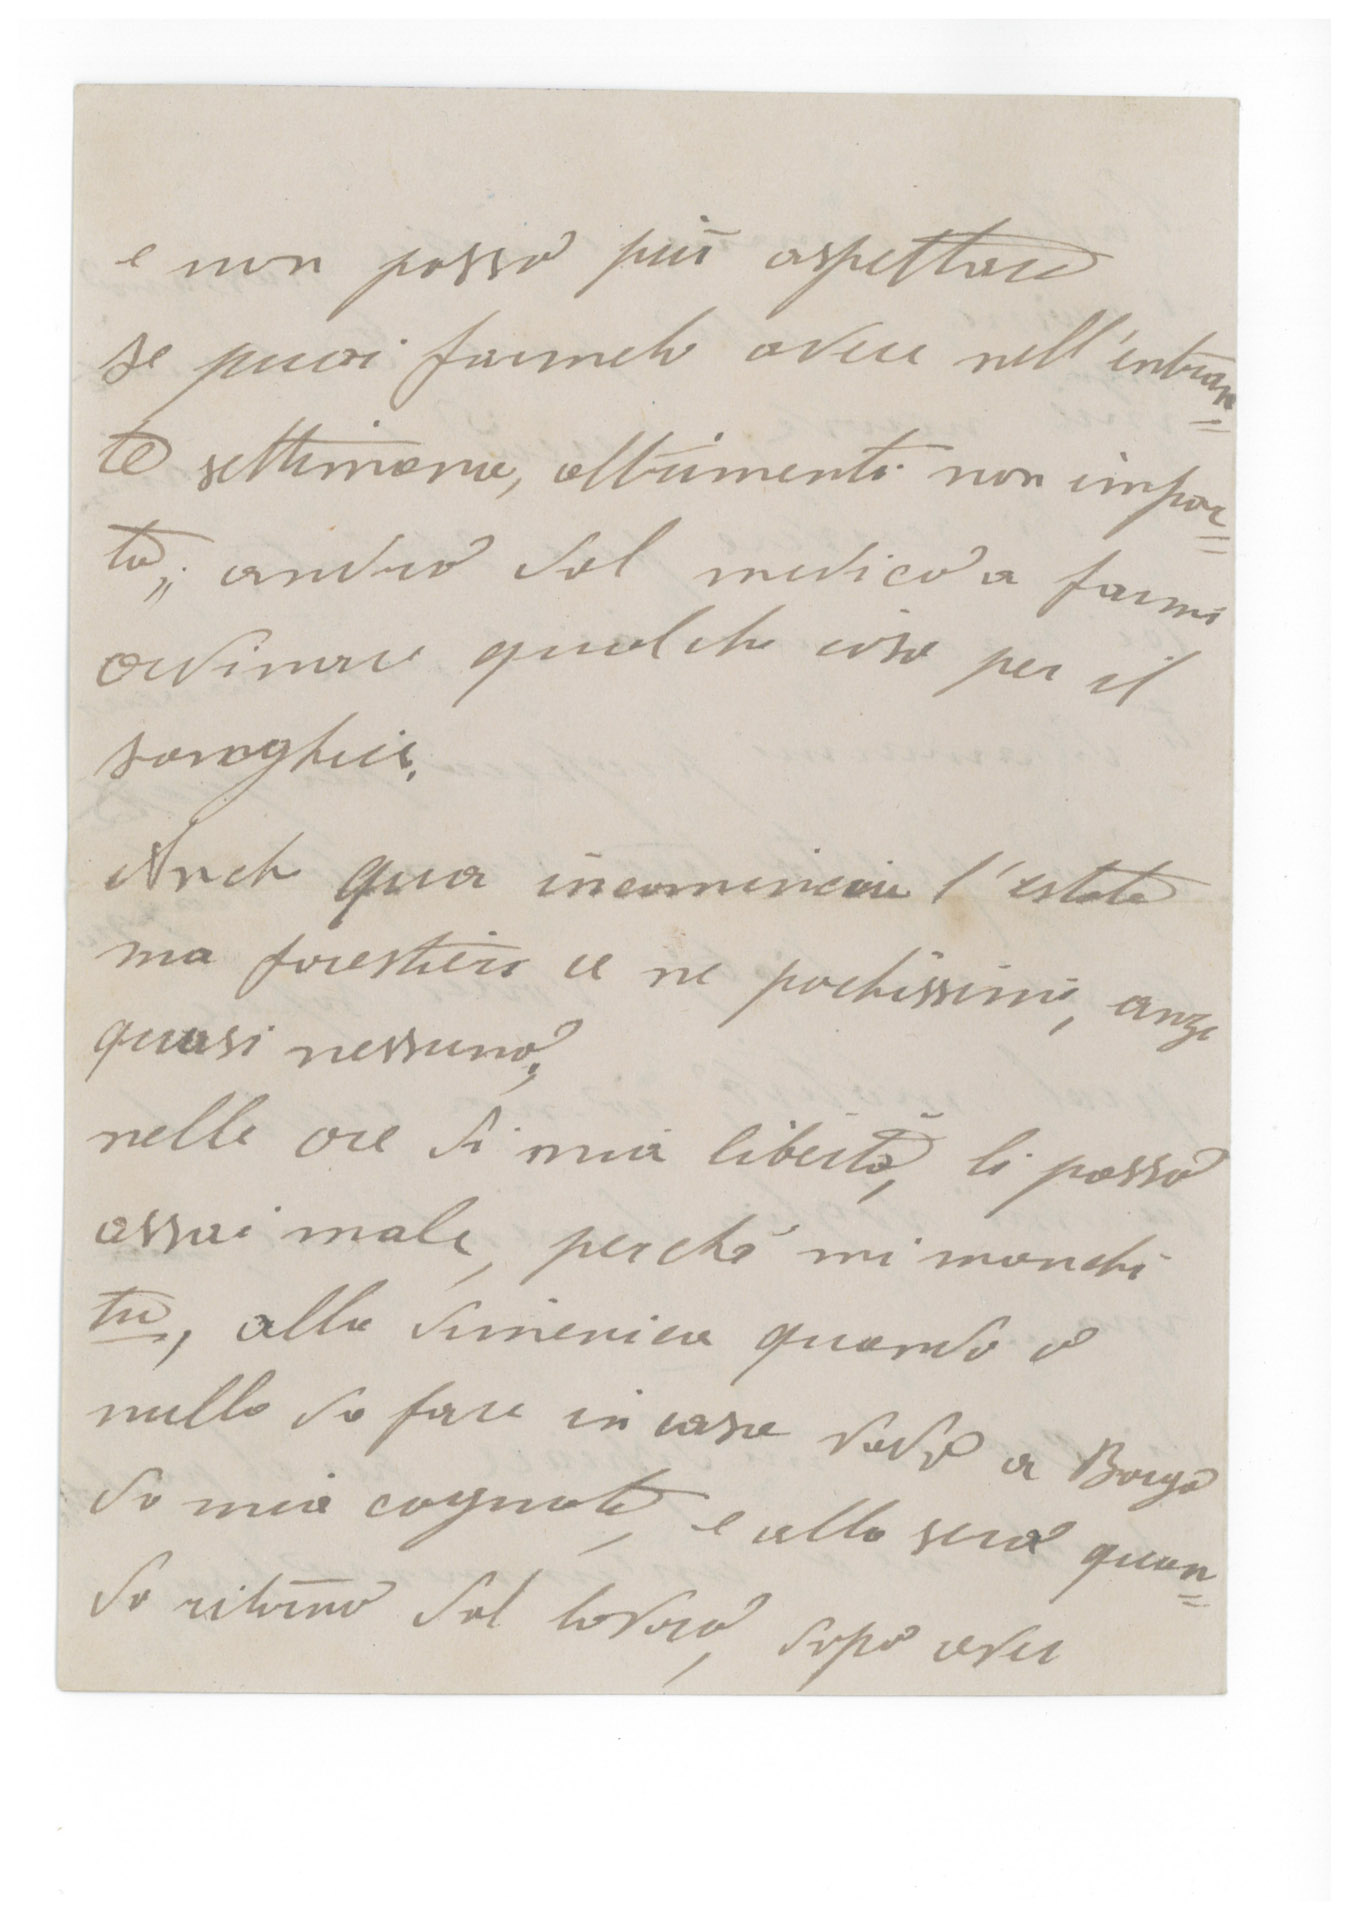 e non posso più aspettare
se puoi farmelo avere nell'entran=
te settimana, altrimenti non impor=
ta,; andrò dal medico a farmi
ordinare qualche cosa per il
Anche qua incomincia l'estate
ma forestieri ce ne pochissimi, anzi
quasi nessuno;
nelle ore di mia libertà, li passo
assai male, perchè mi manchi
tu, alla dimenica quando ò
nulla da fare in casa vado a Borgo
da mia cognata, e alla sera quan=
do ritorno dal lavoro, dopo aver